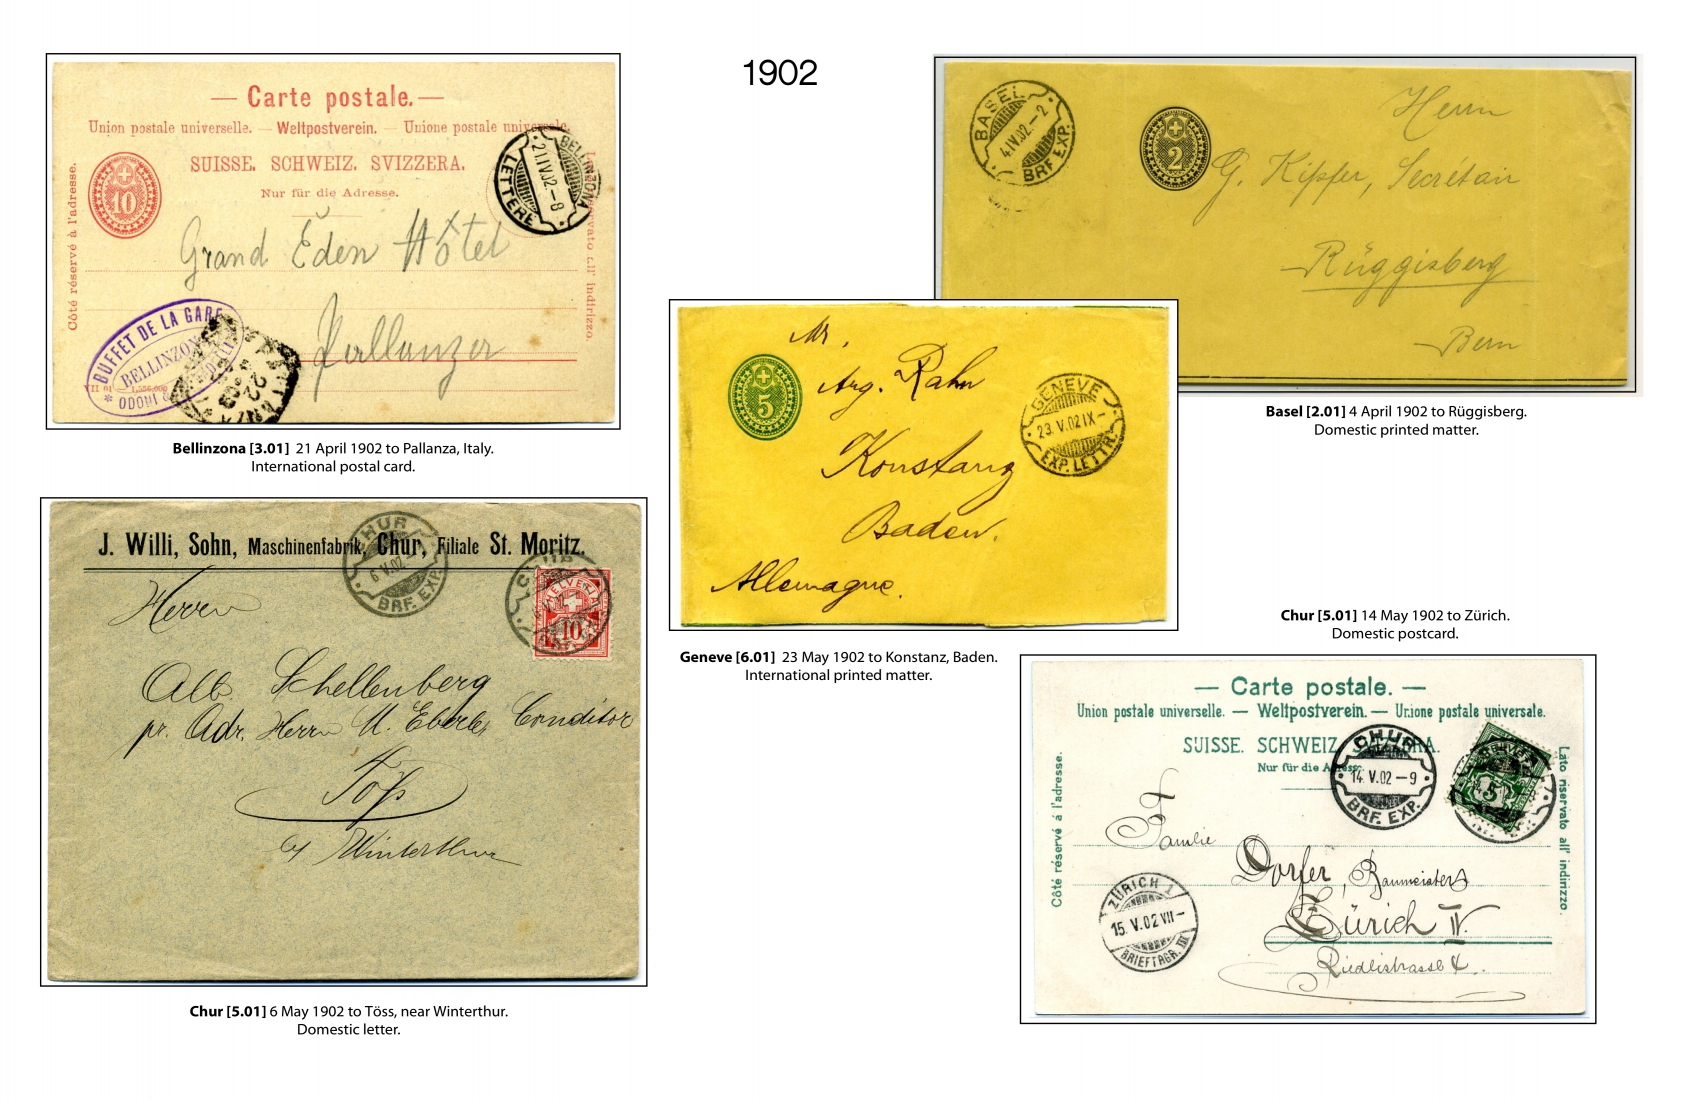 1902
— Carte postale. —
Union postale universelle. — Weltpostverein. — Unione postale universale.
SUISSE. SCHWEIZ. SVIZZERA.
Nur für die Adresse.
Côté réservé à l'adresse.
Lato riservato all' indirizzo.
10
BELLINZONA
21 IV 02 – 8
LETTERE
Grand Eden Hôtel
Pallanza
BUFFET DE LA GARE
BELLINZONA
* ODONI &
VII 01 — 1,556,000
Bellinzona [3.01] 21 April 1902 to Pallanza, Italy.
International postal card.
BASEL
4. IV. 02. – 2
BRF. EXP.
2
Herrn
G. Kipfer, Secrétair
Rüggisberg
Bern
Basel [2.01] 4 April 1902 to Rüggisberg.
Domestic printed matter.
5
GENEVE
23. V. 02 IX –
EXP. LETTR.
Mr.
Arg. Rahn
Konstanz
Baden.
Allemagne.
Geneve [6.01] 23 May 1902 to Konstanz, Baden.
International printed matter.
J. Willi, Sohn, Maschinenfabrik, Chur, Filiale St. Moritz.
CHUR
6 V. 02. –
BRF. EXP.
CHUR
HELVETIA
10
Herrn
Alb. Schellenberg
pr. Adr. Herrn U. Eberle, Conditor
Töss
b/ Winterthur
Chur [5.01] 6 May 1902 to Töss, near Winterthur.
Domestic letter.
Chur [5.01] 14 May 1902 to Zürich.
Domestic postcard.
— Carte postale. —
Union postale universelle. — Weltpostverein. — Unione postale universale.
SUISSE. SCHWEIZ. SVIZZERA.
Nur für die Adresse.
Côté réservé à l'adresse.
Lato riservato all' indirizzo.
CHUR
14. V. 02 – 9
BRF. EXP.
HELVETIA
5
Familie
Dorfer, Baumeisters
Zürich IV.
Riedlistrasse 4.
ZÜRICH 1
15. V. 02 VII –
BRIEFTRGR. III